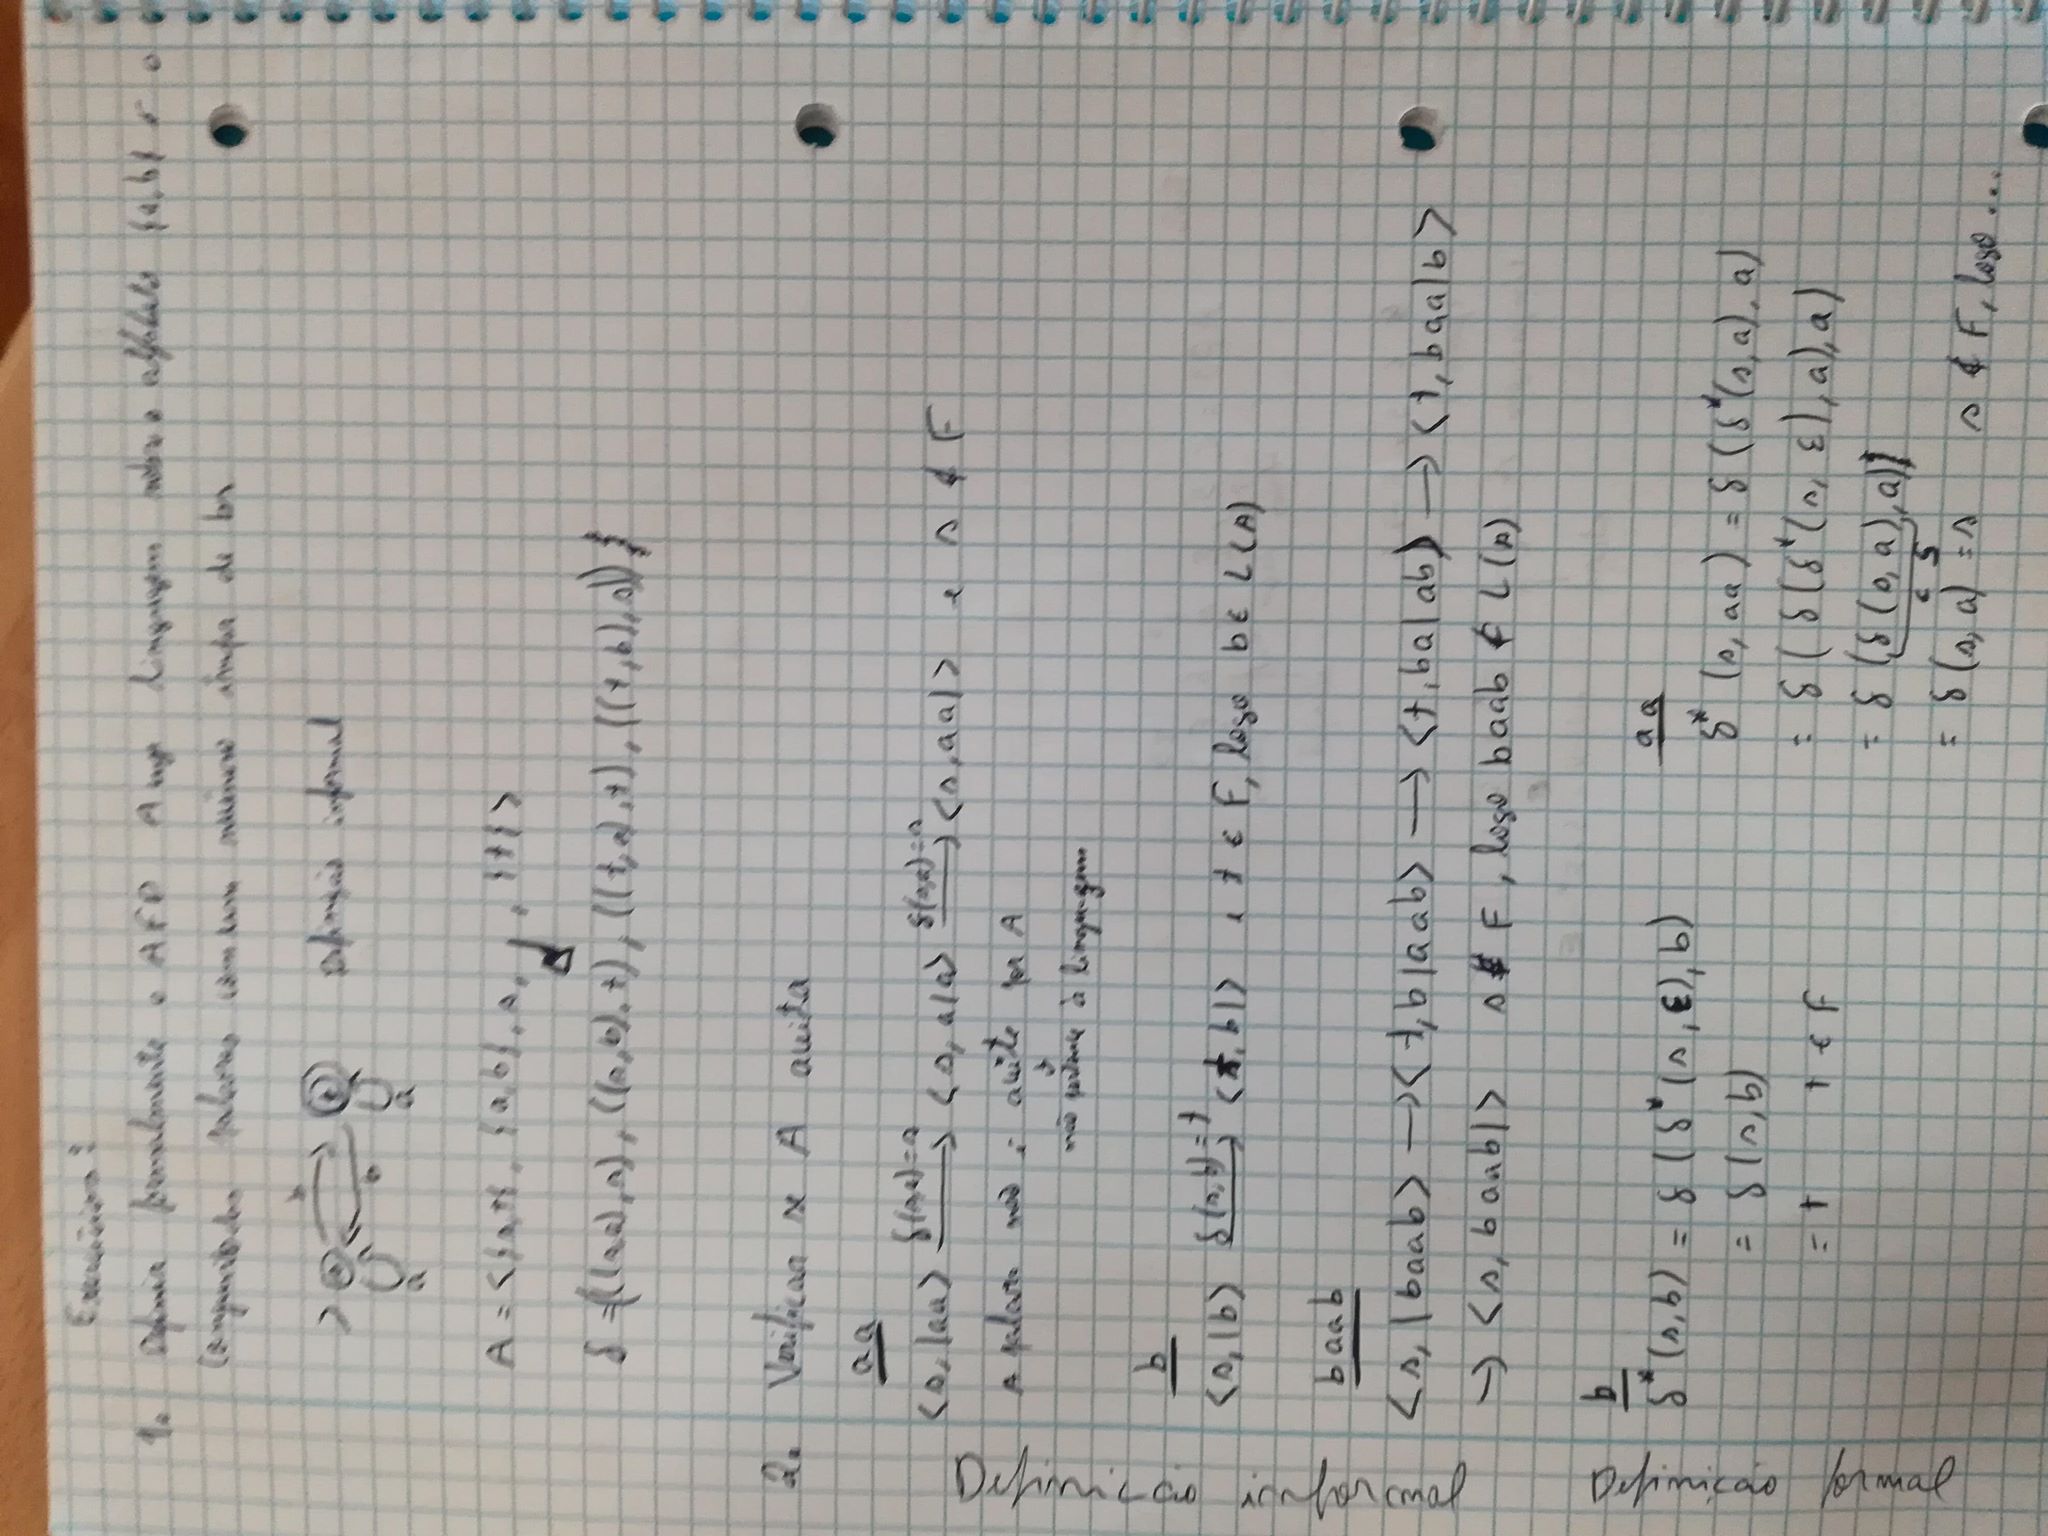 Exercícios:
1. Defina formalmente o AFD A cuja linguagem sobre o alfabeto {a,b} é o
conjunto das palavras com um número ímpar de bs
> s b t Definição informal
b
a a
A = <{s,t}, {a,b}, s, δ, {t}>
δ = {((s,a),s), ((s,b),t), ((t,a),t), ((t,b),s)}
2. Verificar se A aceita
aa
<s,|aa> δ(s,a)=s → <s,a|a> δ(s,a)=s → <s,aa|> e s ∉ F
A palavra não é aceite por A
↓
não pertence à linguagem
b
<s,|b> δ(s,b)=t → <t,b|> e t ∈ F, logo b ∈ L(A)
baab
<s,|baab> → <t,b|aab> → <t,ba|ab> → <t,baa|b>
→ <s,baab|> s ∉ F, logo baab ∉ L(A)
Definicão informal
b
δ*(s,b) = δ(δ*(s,ε),b)
= δ(s,b)
= t t ∈ F
aa
δ*(s,aa) = δ(δ*(s,a),a)
= δ(δ(δ*(s,ε),a),a)
= δ(δ(s,a),a)
é s
= δ(s,a) = s s ∉ F, logo...
Definicão formal